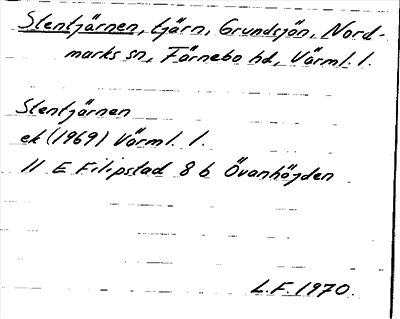 Slentjärnen, tjärn, Grundsjön, Nord-
marks sn, Färnebo hd, Värml. l.
Slentjärnen
ek (1969) Värml. l.
11 E Filipstad 8 b Övanhöjden
L.F. 1970.